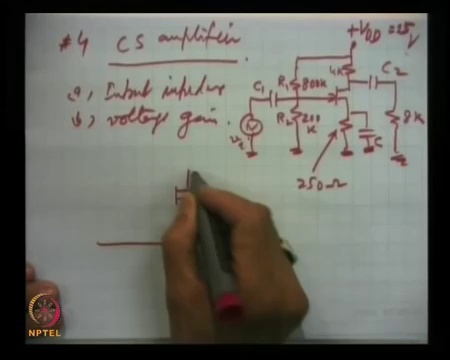 #4 CS amplifier
a, Input impedance
b, voltage gain.
+VDD = 25V
4K
C1
R1 800K
C2
R2 200K
8K
C
250Ω
NPTEL